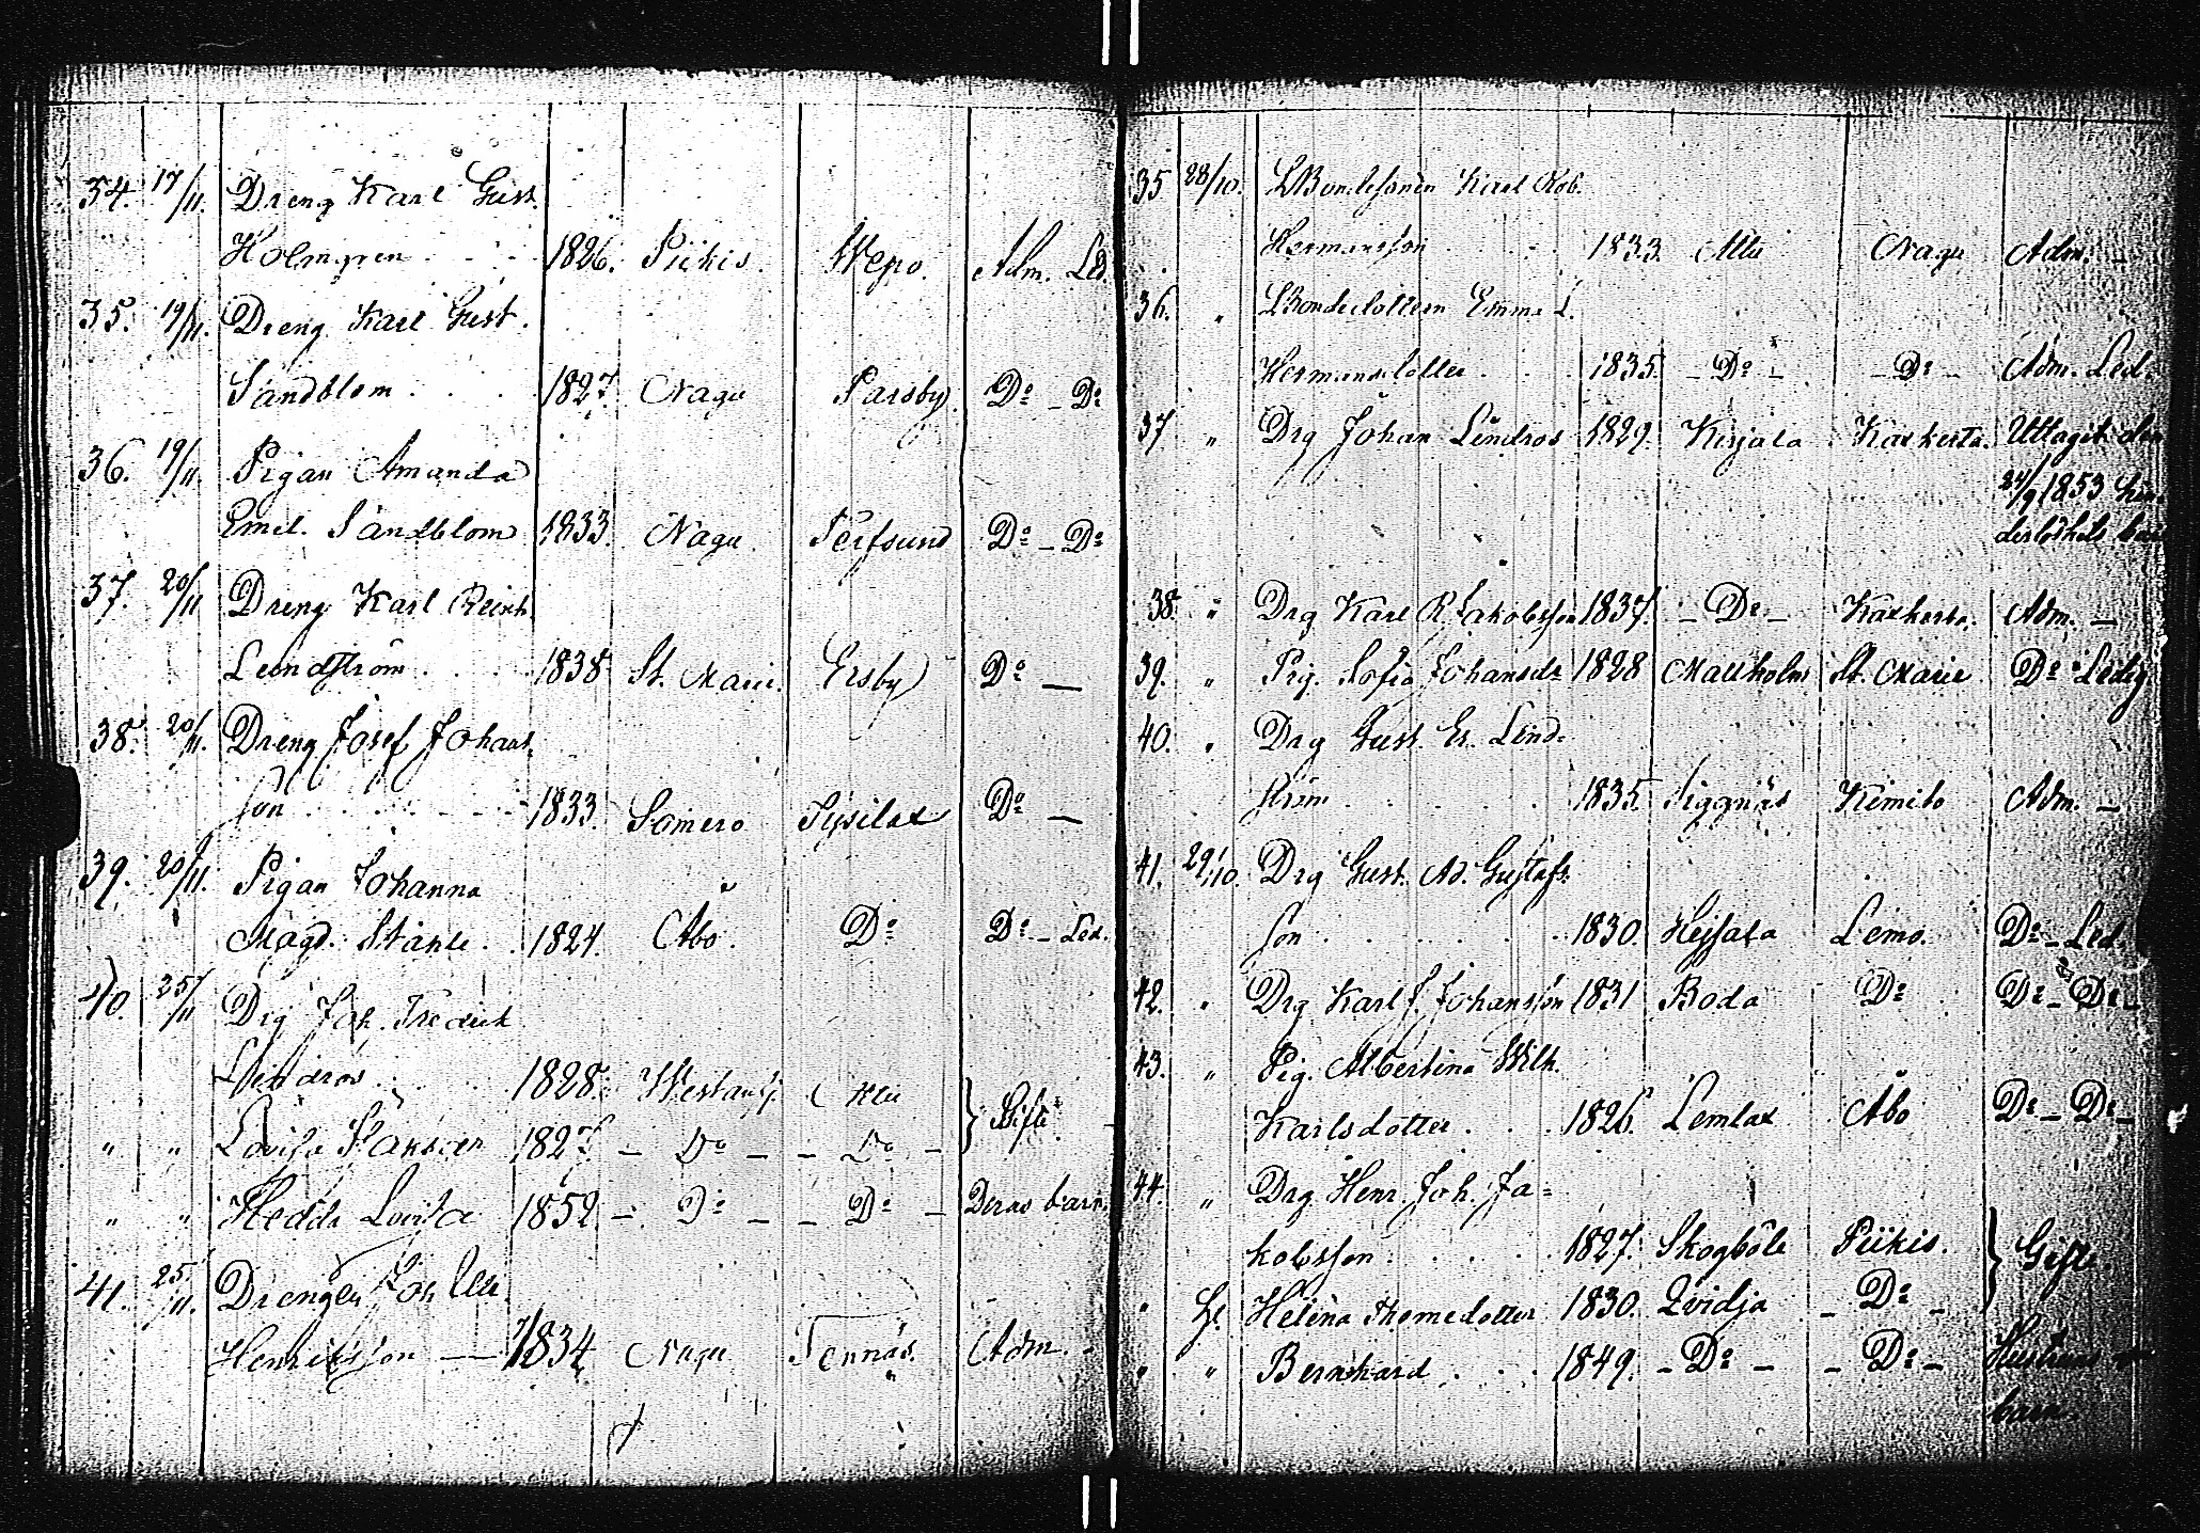 34. 17/11. Dreng Karl Gust.
Holmgren . . . 1826. Piikis. Wepo. Adm. Led.
35. 19/11. Dreng Karl Gust.
Sandblom . . . 1827. Nagu Parsby. Do - Do
36. 19/11. Pigan Amanda
Emil. Sandblom 1833. Nagu. Do - Do
37. 20/11 Dreng Karl Reinh.
Lundström . . . 1838 St. Marie. Ersby Do —
38. 20/11. Dreng Josef Johans
son . . . . . 1833. Somero Do —
39. 20/11. Pigan Johanna
Magd. Ståhle . . 1824. Åbo. Do Do - Led.
40. 25/11 Drg Joh. Fredrik
Lindros . . . 1828. } Gifte.
" " Lovisa 1827. - Do - - Do -
" " Hedda Lovisa 1852. - Do - - Do - Deras barn.
41. 25/11. Drengen Joh
Henriksson — 1834 Nagu Tennäs. Adm. -
35 28/10. LBondesonen Karl Rob.
Hermansson . . . 1833. Nagu Adm. -
36. " LBondedottern Emma L.
Hermansdotter . . 1835. - Do - - Do - Adm. Led.
37 " Drg Johan Lindros 1829. Kirjala Karkerta. Uttagit den
24/9 1853
38. " Drg Karl R. Jakobsson 1837. - Do - Adm. —
39. " Pig. Sofia Johansdr 1828 Mattholm St. Marie Do Ledig
40. " Drg Gust. Er. Lind=
ström . . . . . 1835. Siggnäs Kimito Adm. —
41. 29/10. Drg Gust. Ad. Gustafs
son . . . . . . 1830. Lemo. Do - Led.
42. " Drg Karl J. Johansson 1831 Roda Do Do - Do -
43. " Pig. Albertina Wilh.
Karlsdotter . . . 1826. Lemlax Åbo Do - Do -
44. " Drg Henr. Joh. Ja=
kobsson . . . . 1827. Skogböle Piikis. } Gifte.
" H. Helena Thomedotter 1830. Qvidja - Do -
" " Bernhard . . . 1849. - Do - - Do - Hustruns
barn.